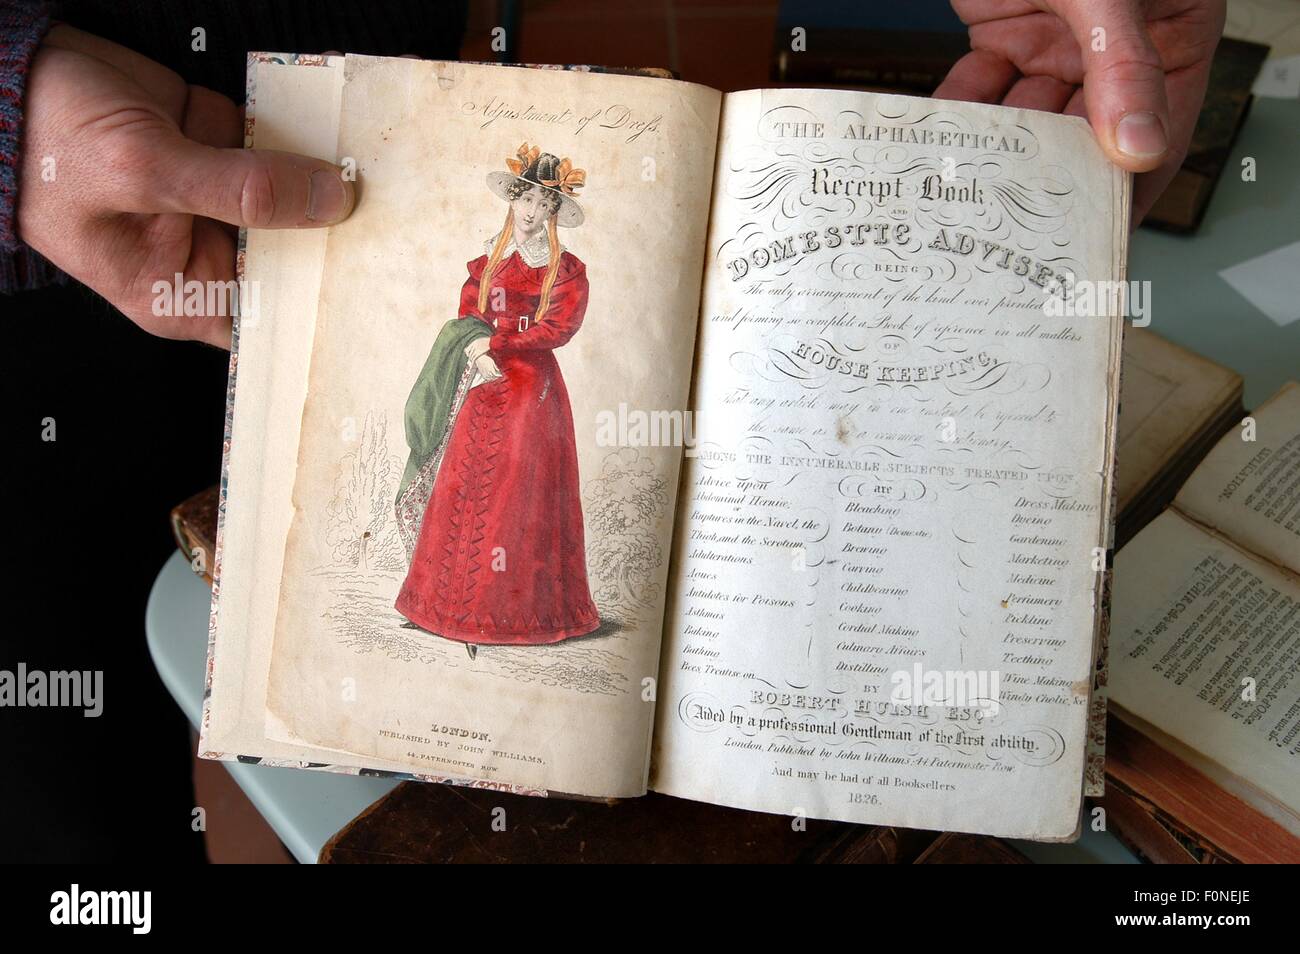 Adjustment of Dreſs.
LONDON.
PUBLISHED BY JOHN WILLIAMS,
44, PATERNOSTER ROW
THE ALPHABETICAL
Receipt Book,
AND
DOMESTIC ADVISER,
BEING
The only arrangement of the kind ever printed
and forming so complete a Book of reference in all matters
OF
HOUSE KEEPING,
That any article may in one instant be referred to
the same as in a common Dictionary.
AMONG THE INNUMERABLE SUBJECTS TREATED UPON
are
Advice upon
Abdominal Herniæ,
or
Ruptures in the Navel, the
Thigh, and the Scrotum.
Adulterations
Agues
Antidotes for Poisons
Asthmas
Baking
Bathing
Bees, Treatise on
Bleaching
Botany (Domestic)
Brewing
Carving
Childbearing
Cooking
Cordial Making
Culinary Affairs
Distilling
Dress Making
Dyeing
Gardening
Marketing
Medicine
Perfumery
Pickling
Preserving
Teething
Wine Making
Windy Cholic, &c
BY
ROBERT HUISH ESQR.
Aided by a professional Gentleman of the first ability.
London, Published by John Williams, 44, Paternoster Row.
And may be had of all Booksellers
1826.
alamy stock photo
F0NEJE
www.alamy.com